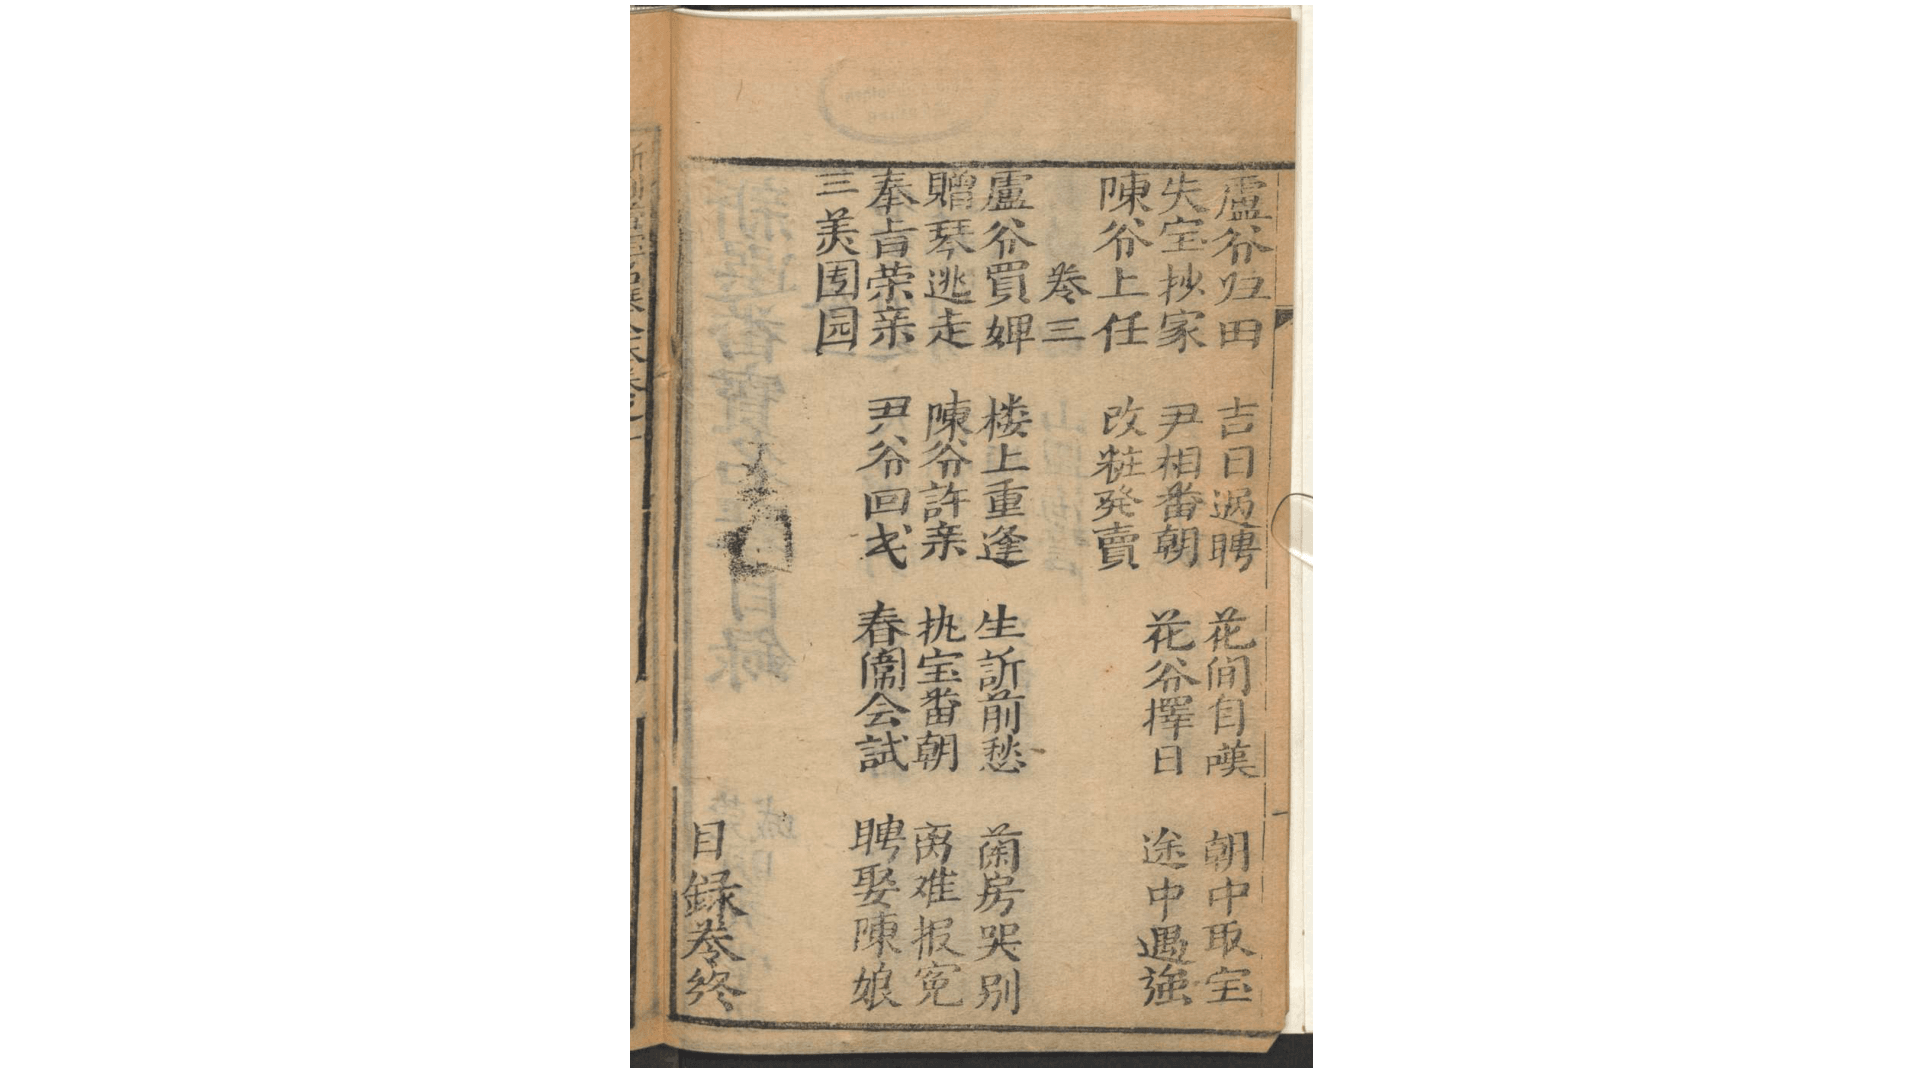 盧爷归田　吉日过聘　花间自嘆　朝中取宝
失宝抄家　尹相番朝　花爷擇日　途中遇強
陳爷上任　改粧発賣
卷三
盧爷買婢　楼上重逢　生訴前愁　蘭房哭别
贈琴逃走　陳爷許亲　执宝番朝　离难报冤
奉旨荣亲　尹爷回式　春闱会試　聘娶陳娘
三美囲园
目録卷终